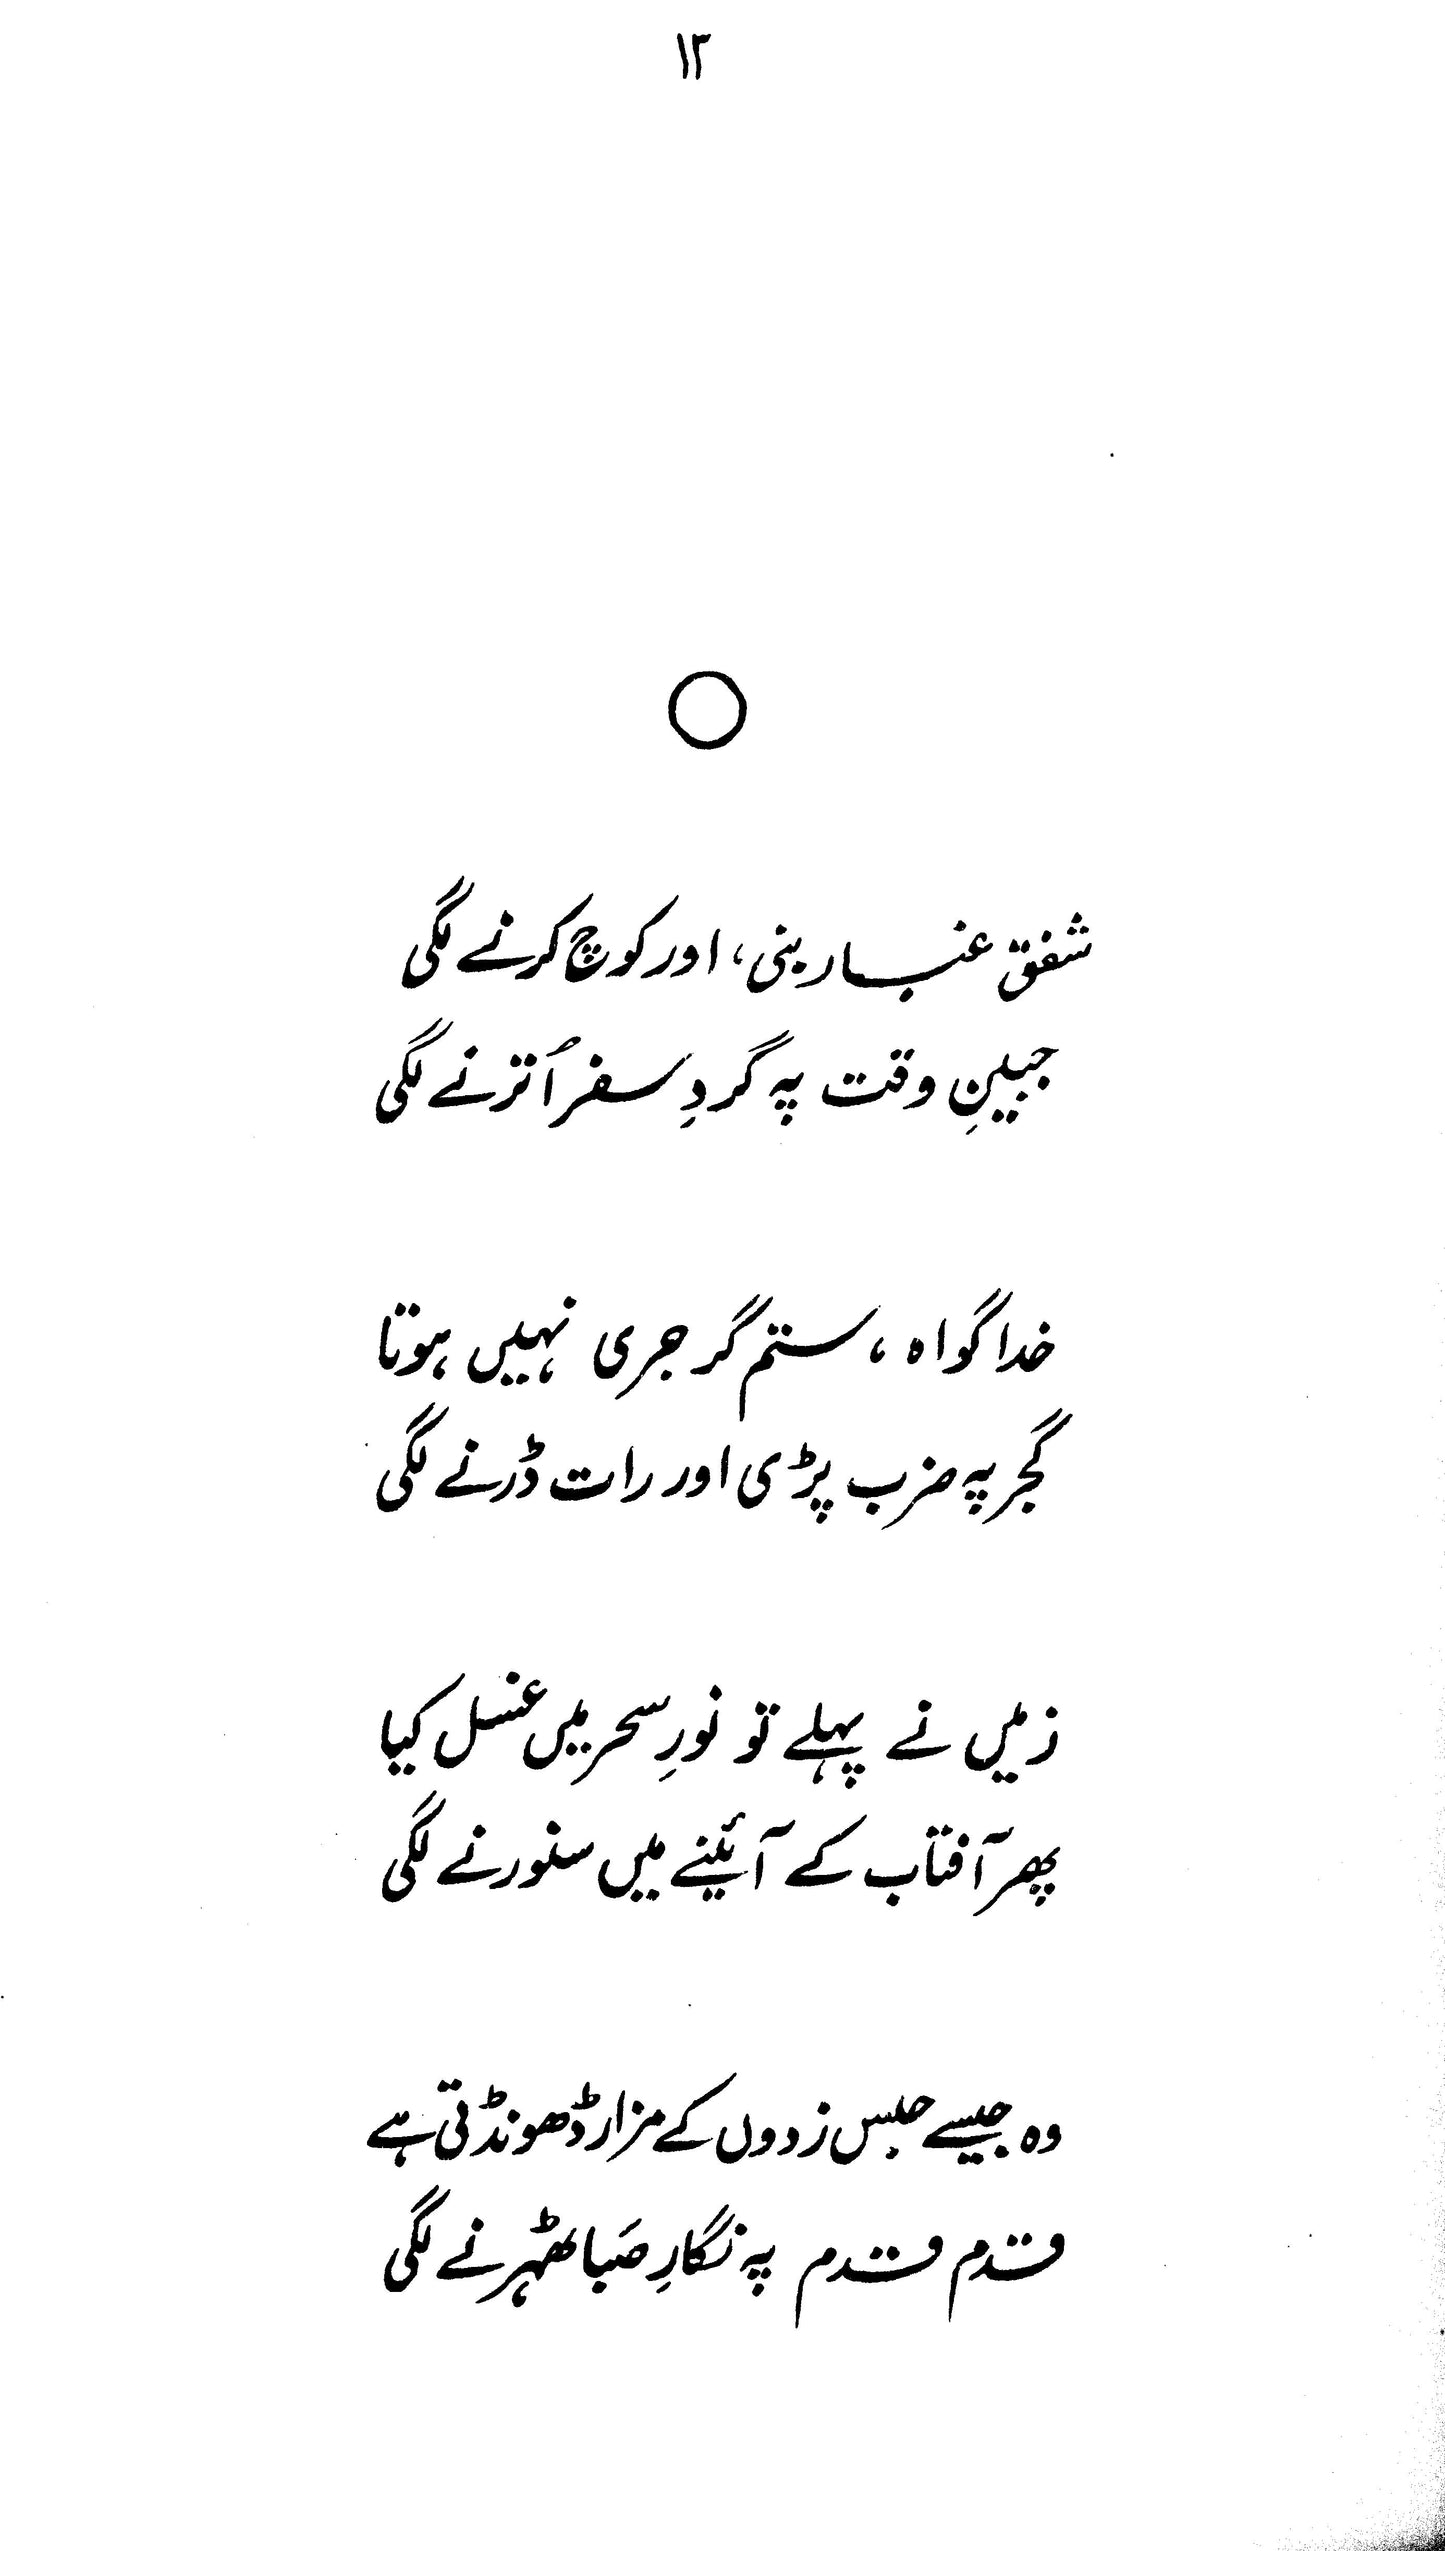 ۱۳
شفق غبار بنی، اور کوچ کرنے لگی
جبینِ وقت پہ گردِ سفر اُترنے لگی
خدا گواہ، ستم گر جری نہیں ہوتا
گجر پہ ضرب پڑی اور رات ڈرنے لگی
زمیں نے پہلے تو نورِ سحر میں غسل کیا
پھر آفتاب کے آئینے میں سنورنے لگی
وہ جیسے حبس زدوں کے مزار ڈھونڈتی ہے
قدم قدم پہ نگارِ صَبا ٹھہرنے لگی